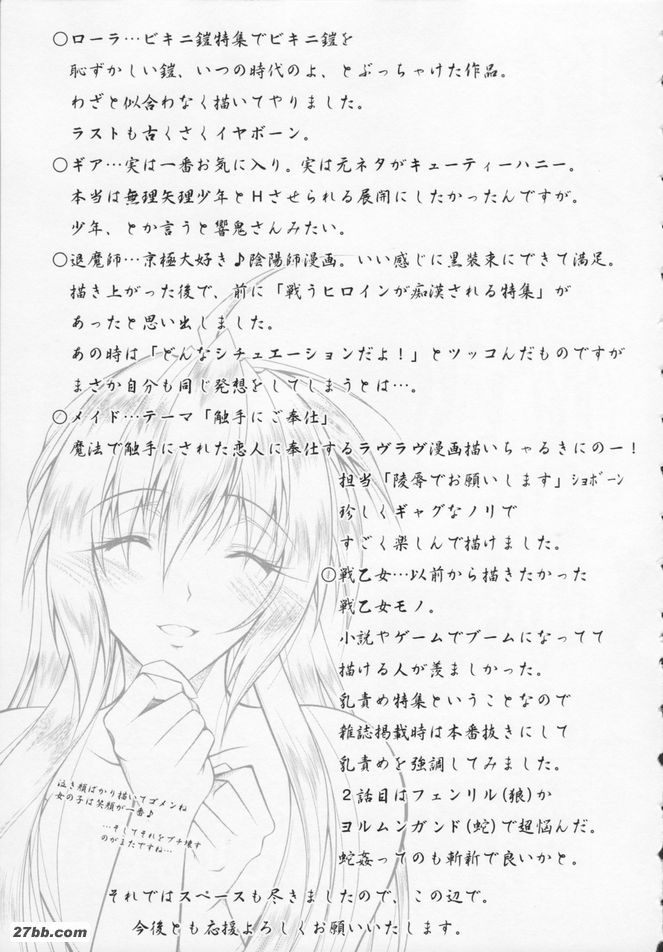 ○ローラ…ビキニ鎧特集でビキニ鎧を
恥ずかしい鎧、いつの時代のよ、とぶっちゃけた作品。
わざと似合わなく描いてやりました。
ラストも古くさくイヤボーン。
○ギア…実は一番お気に入り。実は元ネタがキューティーハニー。
本当は無理矢理少年とHさせられる展開にしたかったんですが。
少年、とか言うと響鬼さんみたい。
○退魔師…京極大好き♪陰陽師漫画。いい感じに黒装束にできて満足。
描き上がった後で、前に「戦うヒロインが痴漢される特集」が
あったと思い出しました。
あの時は「どんなシチュエーションだよ！」とツッコんだものですが
まさか自分も同じ発想をしてしまうとは…。
○メイド…テーマ「触手にご奉仕」
魔法で触手にされた恋人に奉仕するラヴラヴ漫画描いちゃるきにのー！
担当「陵辱でお願いします」ｼｮﾎﾞｰﾝ
珍しくギャグなノリで
すごく楽しんで描けました。
○戦乙女…以前から描きたかった
戦乙女モノ。
小説やゲームでブームになってて
描ける人が羨ましかった。
乳責め特集ということなので
雑誌掲載時は本番抜きにして
乳責めを強調してみました。
２話目はフェンリル(狼)か
ヨルムンガンド(蛇)で超悩んだ。
蛇姦ってのも斬新で良いかと。
泣き顔ばかり描いてゴメンね
女の子は笑顔が一番♪
…そしてそれをブチ壊す
のがまたですね…
それではスペースも尽きましたので、この辺で。
今後とも応援よろしくお願いいたします。
27bb.com